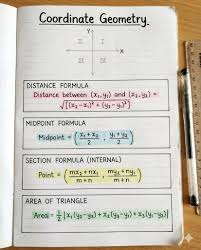 Coordinate Geometry
Y
II I
X
III IV
DISTANCE FORMULA
Distance between (x₁, y₁) and (x₂, y₂) =
√[(x₂-x₁)² + (y₂-y₁)²]
MIDPOINT FORMULA
Midpoint = (x₁+x₂/2, y₁+y₂/2)
SECTION FORMULA (INTERNAL)
Point = (mx₂+nx₁/m+n, my₂+ny₁/m+n)
AREA OF TRIANGLE
Area = ½ |x₁(y₂-y₃) + x₂(y₃-y₁) + x₃(y₁-y₂)|